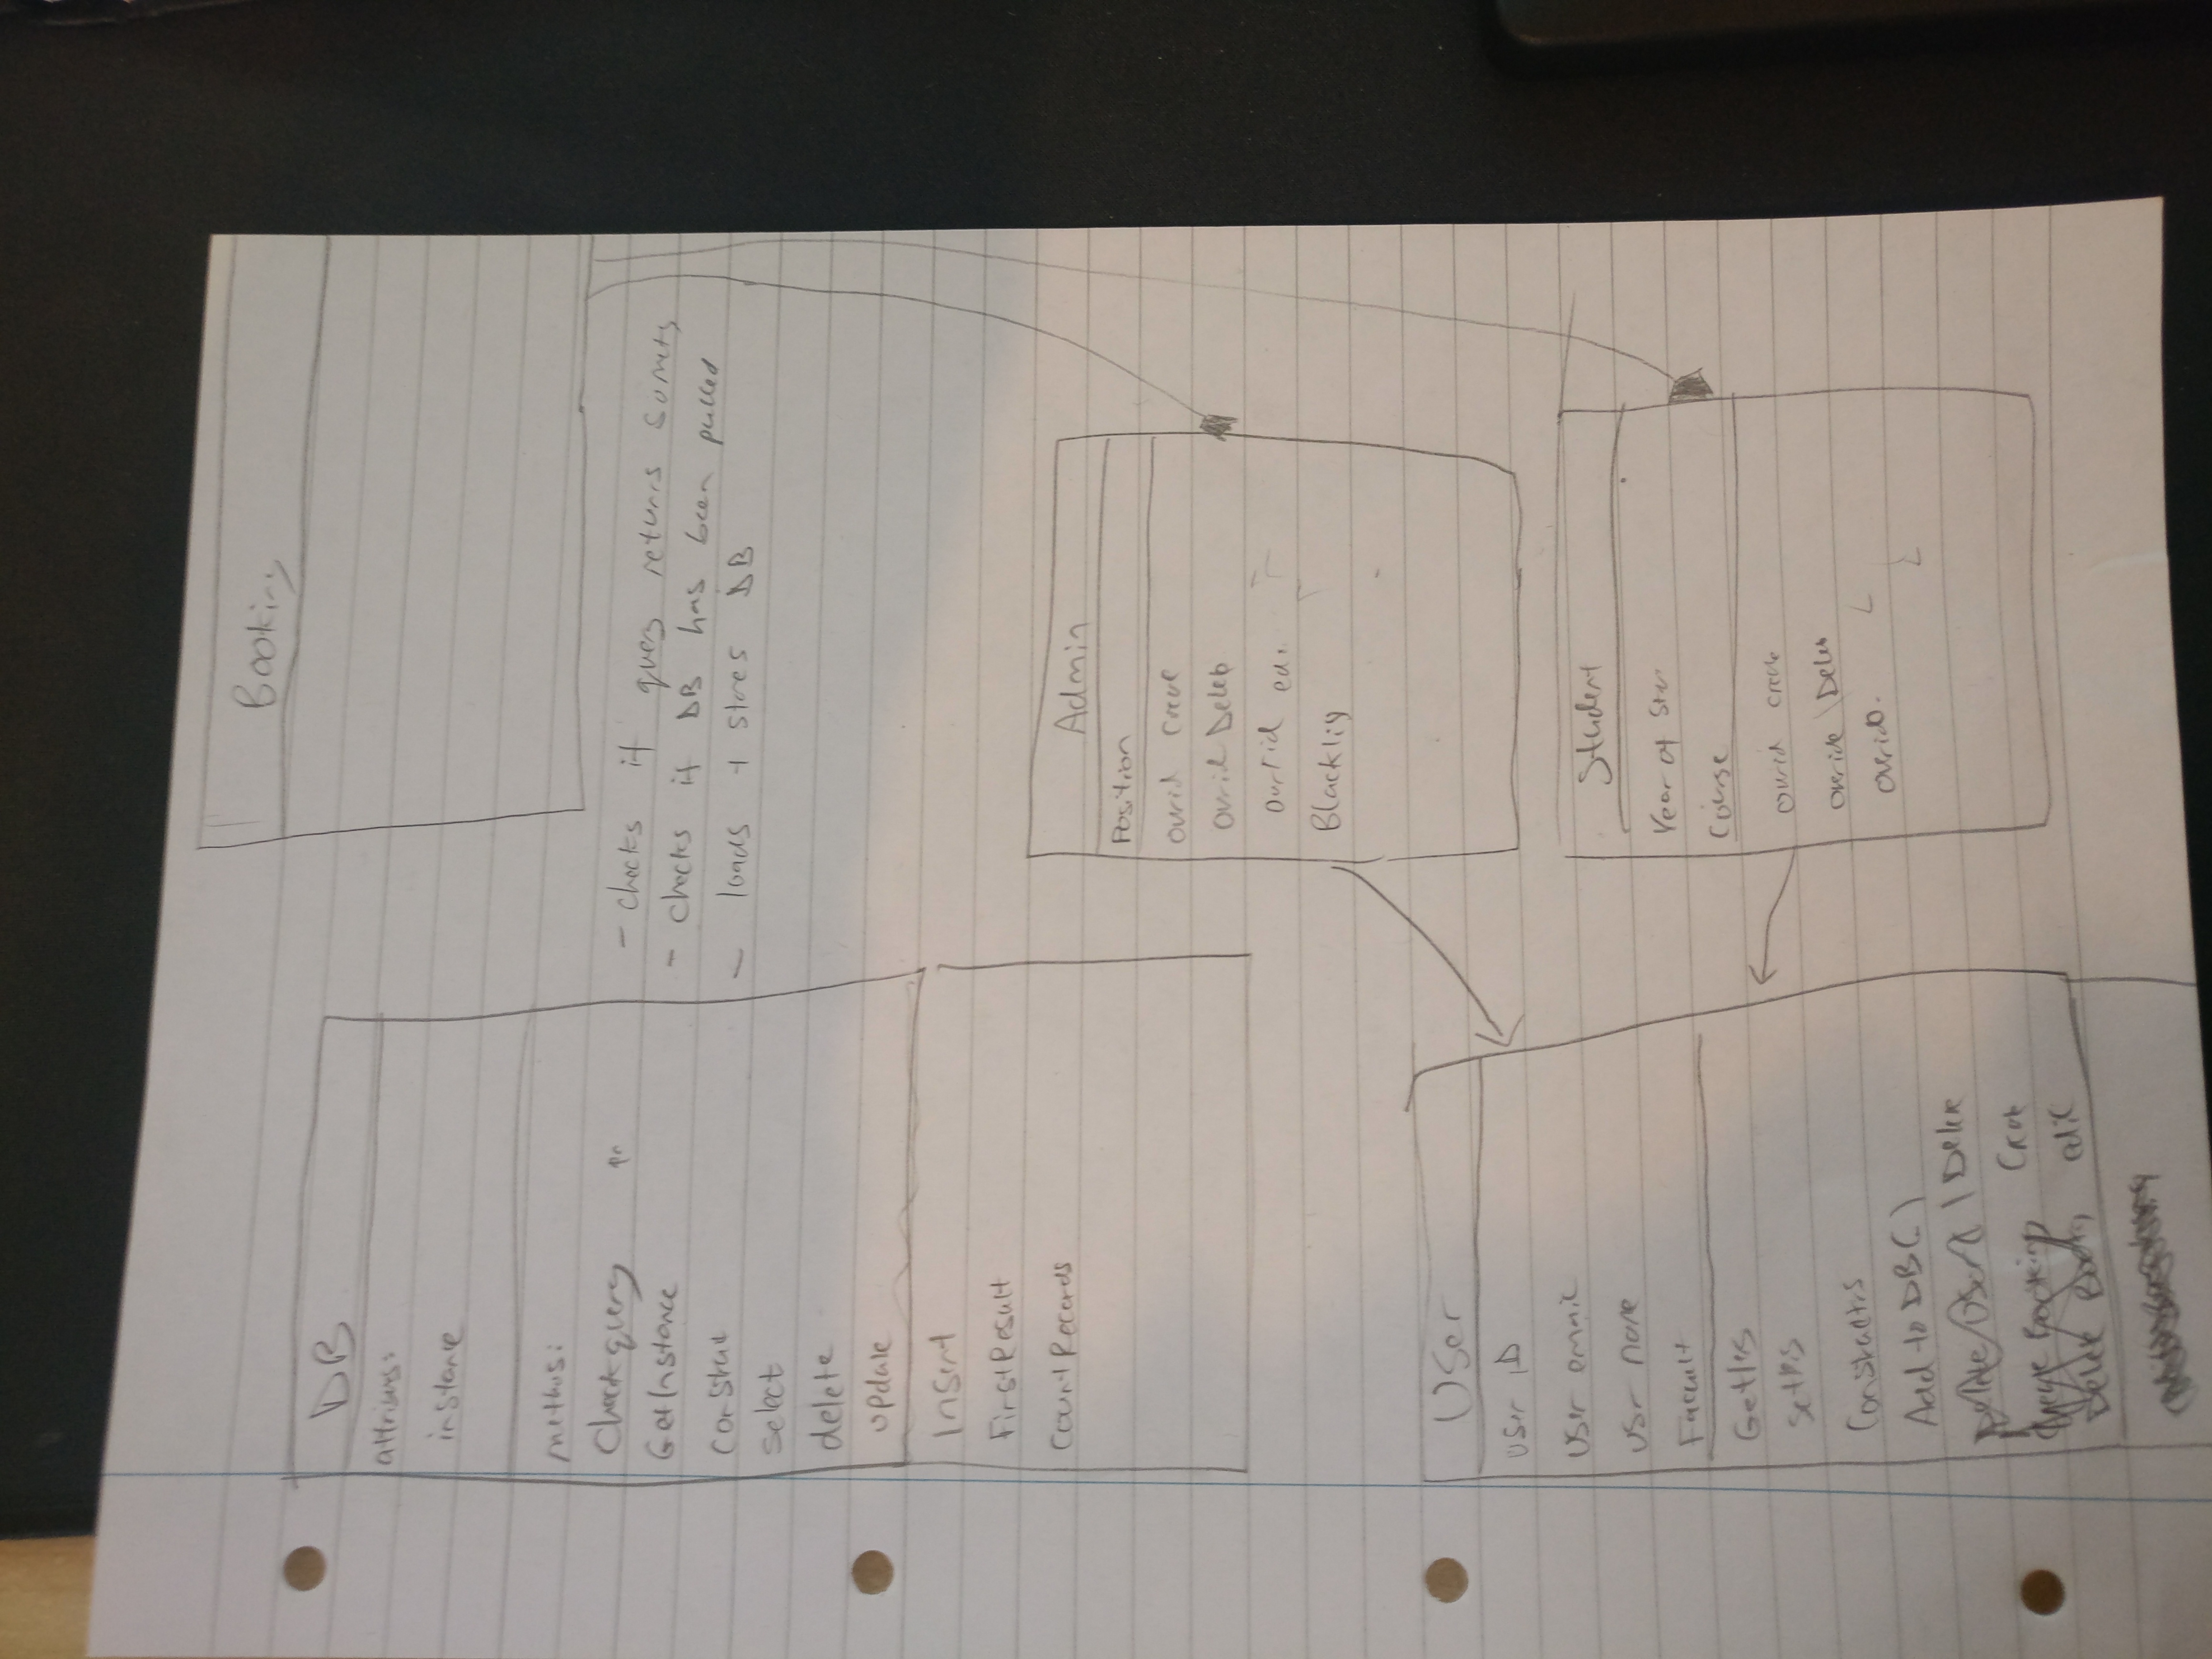 Booking
DB
attribus:
instance
methus:
Check query
Get Instance
construt
select
delete
update
Insert
First Result
Count Records
- checks if query returns somety
- checks if DB has been pulled
- loads + stores DB
Admin
Position
ovrid Creae
ovrid Delete
ovrid edi
Blacklis
Student
Year of Stu
Course
ovrid create
overide Delete
overid.
User
User ID
User email
User name
Facult
Getters
setters
Constructrs
Add to DB()
Delete User() / Delete
Booking Creat
Delete Booking edit